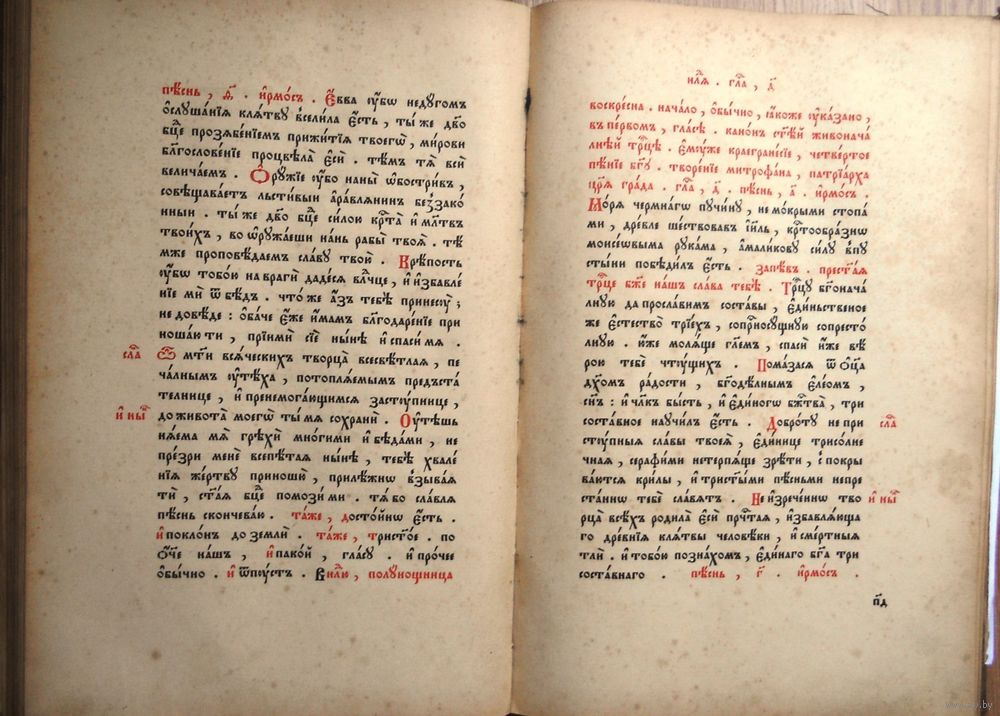 пѣ́снь, ѳ҃. і҆рмо́съ. Є҆́вва ᲂу҆́бѡ недꙋ́гомъ
ѡ҆слꙋша́нїѧ клѧ́твꙋ вселила є҆́сть, ты́ же дв҃о
бц҃е прозѧбе́нїемъ прижи́тїѧ твоегѡ̀, ми́рови
бл҃гослове́нїе процвѣла̀ є҆сѝ. тѣ́мъ тѧ̀ всѝ
велича́емъ. Ѻ҆рꙋ́жїе ᲂу҆́бо на́ны ѡ҆бостри́въ,
совѣщава́етъ льсти́выи а҆ра́влѧнинъ беззако́
нныи. ты́ же дв҃о бц҃е си́лою крⷭ҇та̀ и҆ мл҃твъ
твои́хъ, во ѡ҆рꙋжа́еши на́нь рабы̀ твоѧ̀. тѣ́
мже проповѣ́даемъ сла́вꙋ твою̀. Крѣ́пость
ᲂу҆́бѡ тобо́ю на врагѝ даде́сѧ вл҃чце, и҆ и҆збавле́
нїе мѝ ѿ бѣ́дъ. что́ же а҆́зъ тебѣ̀ принесꙋ̀;
не довѣ́де: ѻ҆ба́че є҆́же и҆́мамъ бл҃годаре́нїе при
ношаю ти, прїимѝ сїѐ ны́нѣ и҆ спаси́ мѧ.
сла́ Ѽ мт҃и всѧ́ческихъ творца̀ всесвѣ́тлаѧ, пе
ча́лнымъ ᲂу҆тѣ́ха, потоплѧ́емымъ предъста́
телнице, и҆ пренемога́ющимсѧ застꙋ́пнице,
и҆ ны́ до живота̀ моегѡ̀ ты́ мѧ сохранѝ. Оу҆тѣ́шь
нѧ́ема мѧ̀ грѣхѝ мно́гими и҆ бѣда́ми, не
пре́зри менѐ всепѣ́таѧ ны́нѣ, тебѣ̀ хвале́
нїѧ же́ртвꙋ приношꙋ̀, прилѣ́жнѡ взыва́ѧ
тѝ, ст҃а́ѧ бц҃е помози́ ми. тѧ́ бо сла́влѧ
пѣ́снь сконче́ваю. та́же, досто́йнѡ є҆́сть.
и҆ покло́нъ до землѝ. та́же, тристо́е. по
ѻ҆́ч҃е на́шъ, и҆пако́й, гла́сꙋ. и҆ про́чее
ѻ҆бы́чно. и҆ ѿпꙋ́стъ. В нл҃ю, полꙋнощница
нл҃ѧ. гла́, д҃
воскре́сна. нача́ло, ѻ҆бы́чно, ꙗ҆́коже ᲂу҆ка́зано,
въ пе́рвомъ, гла́сѣ. кано́нъ ст҃ѣ́й живонача́
лнѣй трⷪ҇цѣ. є҆мꙋ́же краегране́сїе, четве́ртое
пѣ́нїе бг҃ꙋ. творе́нїе митрофа́на, патрїа́рха
цр҃ѧ гра́да. гла́, д҃. пѣ́снь, а҃. і҆рмо́съ.
Мо́рѧ чермна́гѡ пꙋчи́нꙋ, не мо́крыми стопа́
ми, дре́вле ше́ствовавъ і҆и҃ль, крⷭ҇тоѡбра́знѡ
моисе́ѡвыма рꙋка́ма, а҆мали́ковꙋ си́лꙋ впꙋ
сты́ни побѣди́лъ є҆́сть. запѣ́въ. прест҃а́ѧ
трⷪ҇це бж҃е на́шъ сла́ва тебѣ̀. Трⷪ҇цꙋ бг҃онача́
лнꙋю да просла́вимъ соста́вы, є҆ди́ньственое
же є҆стество̀ трїе́хъ, соприсносꙋ́щнꙋю сопресто́
лнꙋю. ю҆́же молѧ́ще гл҃емъ, спасѝ и҆̀же вѣ́
рою тебѐ чтꙋ́щихъ. Пома́засѧ ѿ ѻ҆ц҃а
дх҃омъ ра́дости, бг҃одѣ́лнымъ є҆ле́омъ,
сн҃ъ: и҆ чл҃къ бы́сть, и҆ є҆ди́ногѡ бж҃тва̀, три
соста́вное наꙋчи́лъ є҆́сть. Добро́тꙋ не при сла́
стꙋ́пныѧ сла́вы твоеѧ̀, є҆ди́нице трисо́лне
чнаѧ, серафи́ми нетерпѧ́ще зрѣ́ти, с̾ покры
ва́ютсѧ крилы̀, и҆ трист҃ы́ми пѣ́сньми непре
ста́ннѡ тебѐ сла́вѧтъ. Неи҆зрече́ннѡ тво и҆ ны́
рца̀ всѣ́хъ родила̀ є҆сѝ прчⷭ҇таѧ, и҆збавлѧ́юща
го дре́внїѧ клѧ́твы человѣ́ки, и҆ сме́ртныѧ
тлѝ. и҆ тобо́ю позна́хомъ, є҆ди́наго бг҃а три
соста́внаго. пѣ́снь, г҃. і҆рмо́съ.
п҃д